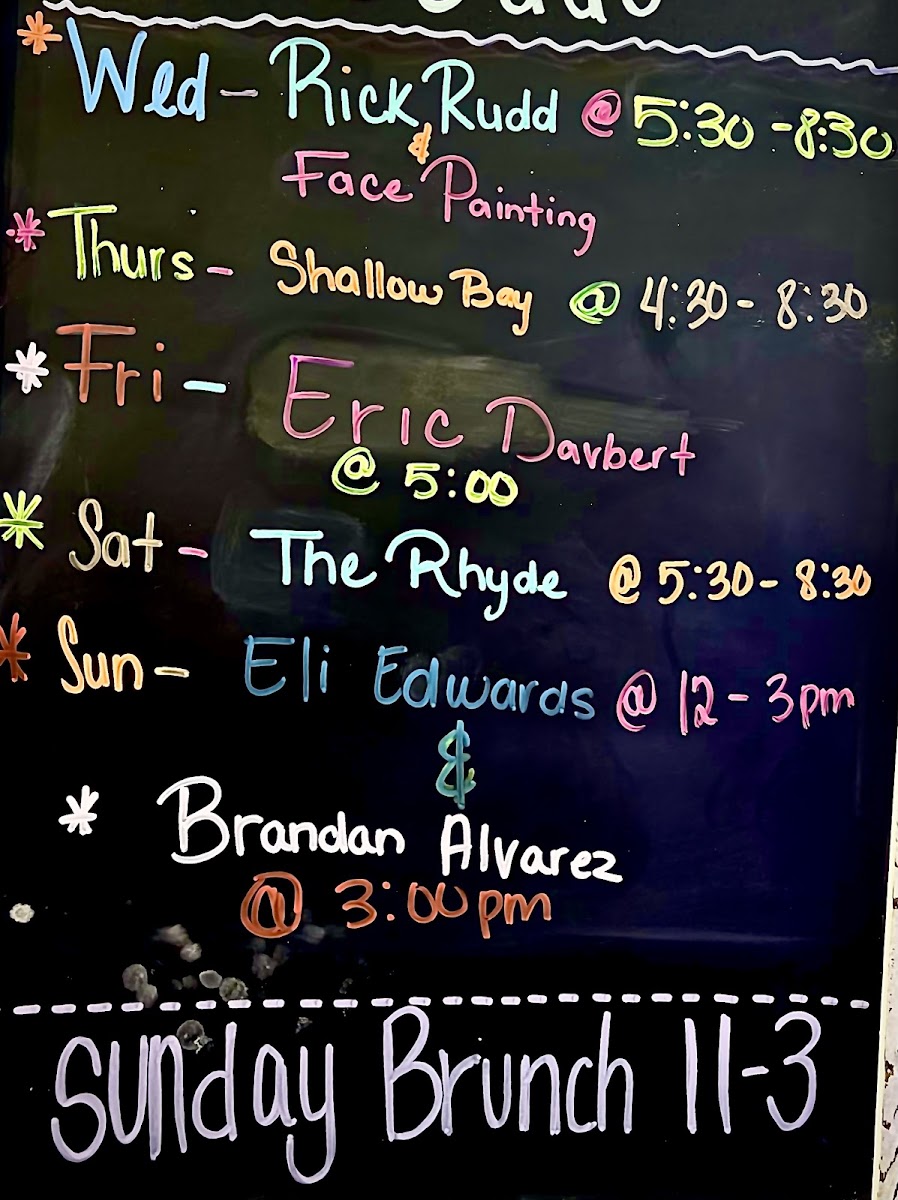 * Wed - Rick Rudd @ 5:30 - 8:30
&
Face Painting
* Thurs - Shallow Bay @ 4:30 - 8:30
* Fri - Eric Darbert
@ 5:00
* Sat - The Rhyde @ 5:30 - 8:30
* Sun - Eli Edwards @ 12 - 3pm
&
* Brandan Alvarez
@ 3:00pm
Sunday Brunch 11-3